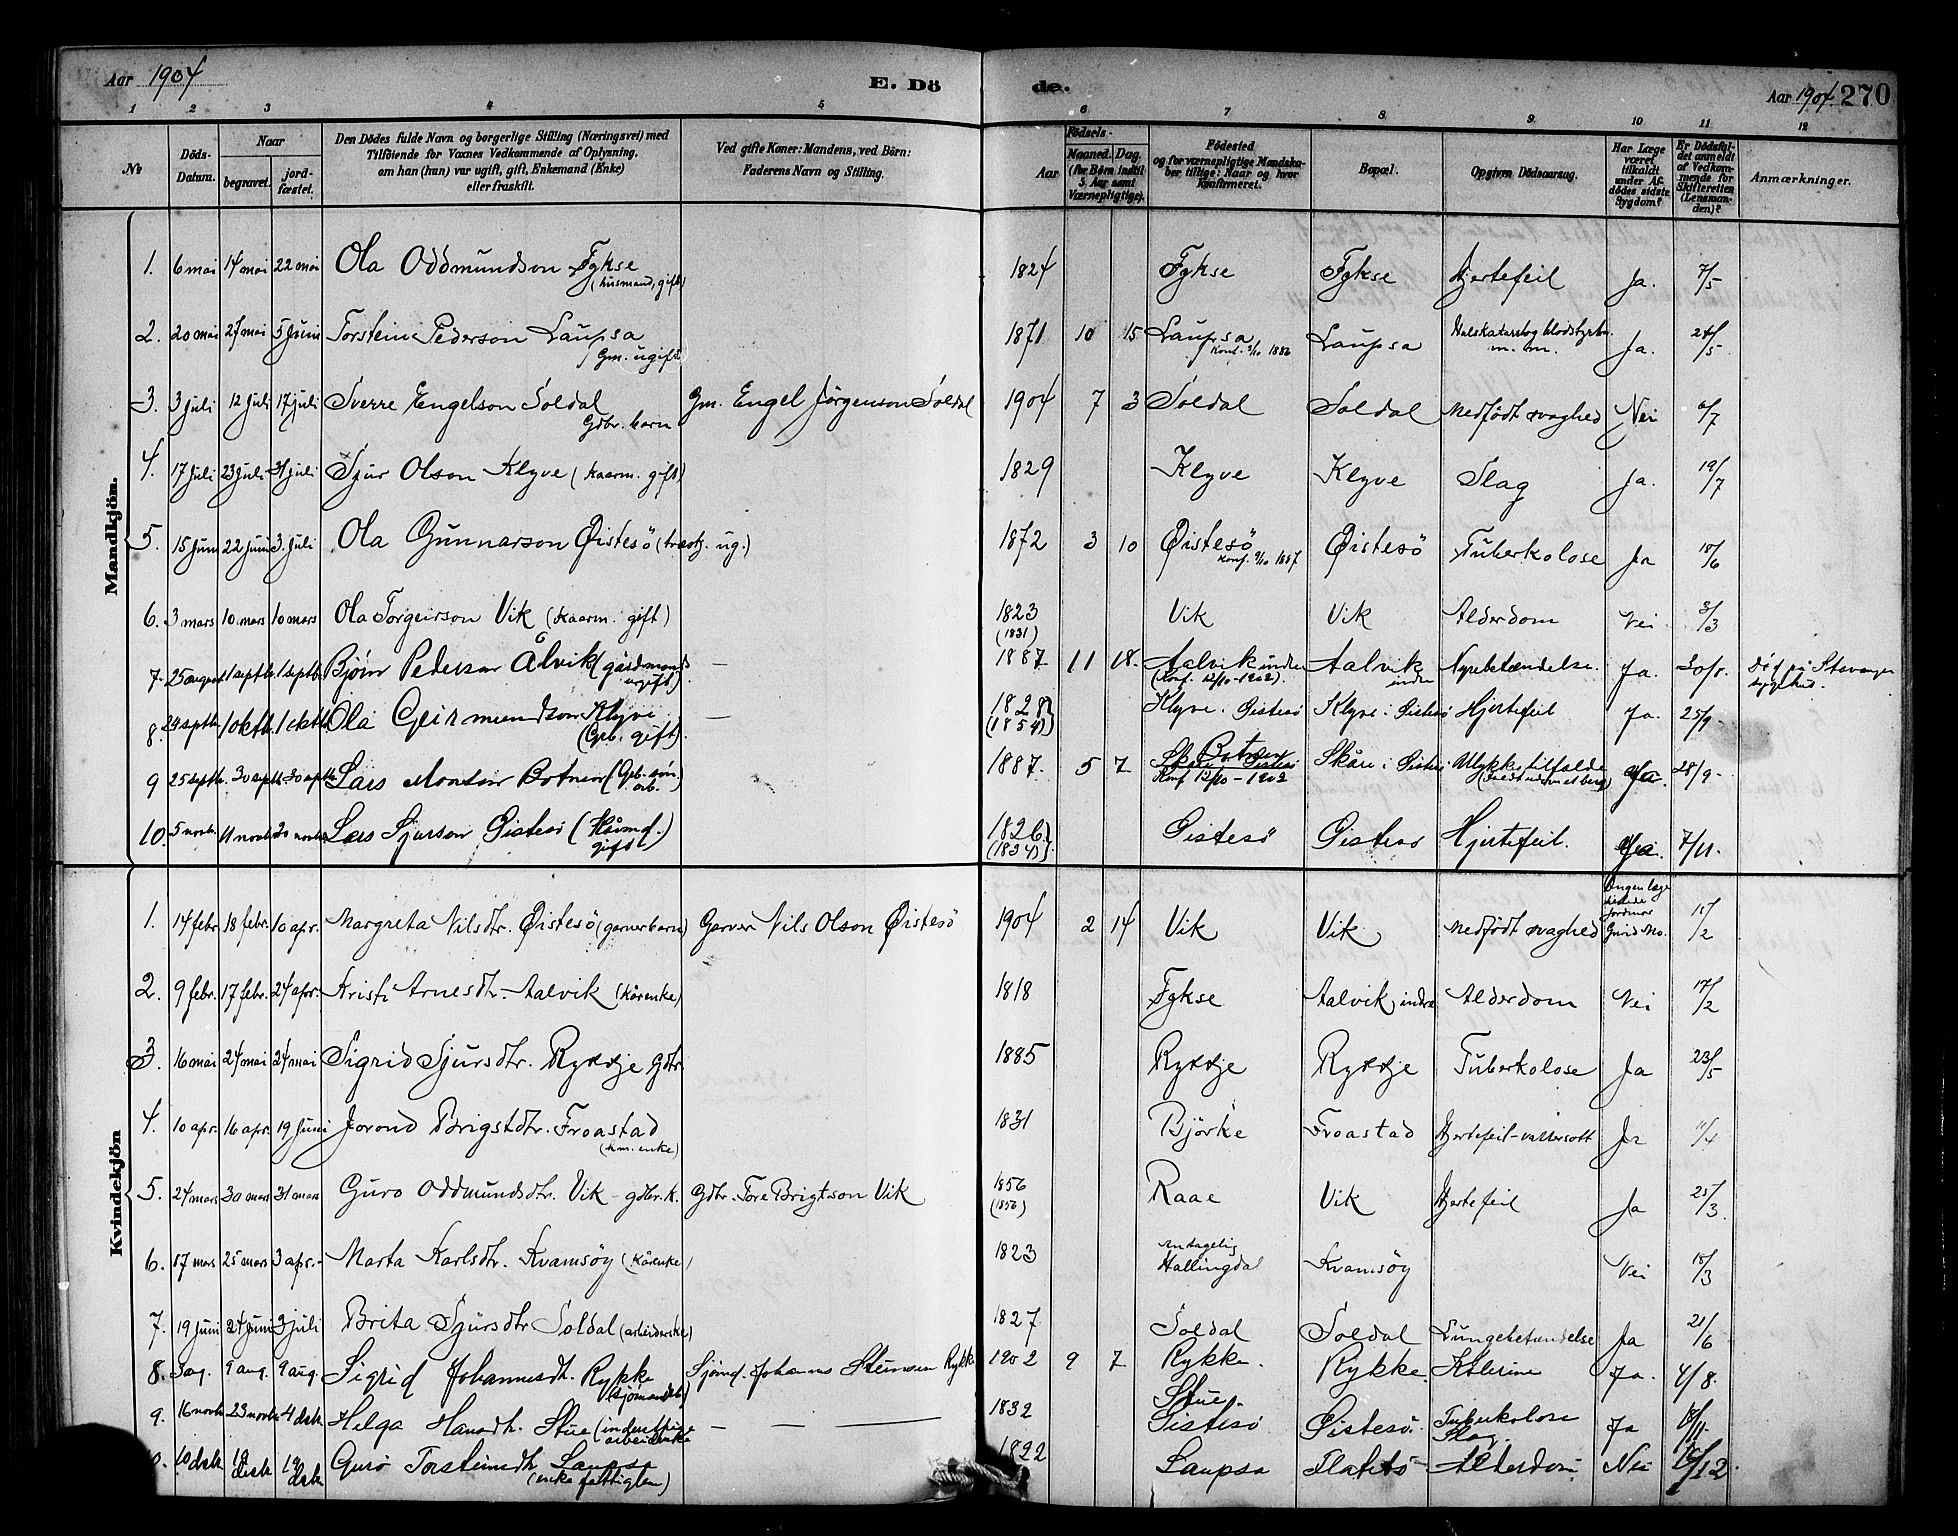 Aar 1904 E. Dö de. Aar 1904 270
1 2 3 4 5 6 7 8. 9. 10 11 12
№ Döds-Datum. Naar begravet. jordfæstet. Den Dödes fulde Navn og borgerlige Stilling (Næringsvei) med Tilföiende for Voxnes Vedkommende af Oplysning, om han (hun) var ugift, gift, Enkemand (Enke) eller fraskilt. Ved gifte Koner: Mandens, ved Börn: Faderens Navn og Stilling. Födsels- Aar Maaned. Dag. (for Börn indtil 5 Aar samt Værnepligtige). Födested og for værnepligtige Mandskaber tillige: Naar og hvor konfirmeret. Bopæl. Opgiven Dödsaarsag. Har Læge været tilkaldt under Afdödes sidste Sygdom? Er Dödsfaldet anmeldt af Vedkommende for Skifteretten (Lensmanden)? Anmærkninger.
Mandkjön.
1. 6 mai 14 mai 22 mai Ola Oddmundson Fykse (husmand, gift) 1824 Fykse Fykse Hjertefeil Ja. 7/5
2. 20 mai 27 mai 5 Juni Torstein Pederson Laupsa (Gm. ugift) 1871 10 15 Laupsa Laupsa Halskatarr og blodstyrtn. m. m. Ja.
3. 3 juli 12 juli 17 juli Sverre Engelson Soldal Gdbr. barn Gm. Engel Jørgenson Soldal 1904 7 3 Soldal Soldal Medfödt svaghed Nei 6/7
4. 17 juli 23 juli 31 juli Sjur Olson Klyve (kaarm. gift) 1829 Klyve Klyve Slag Ja. 19/7
5. 15 Juni 22 Juni 3. Juli Ola Gunnarson Øistesö ug.) 1872 3 10 Øistesö Øistesö Tuberkolose Ja 18/6
6. 3 mars 10 mars 10 mars Ola Torgeirson Vik (kaarm. gift) 1823 (1831) Vik Vik Alderdom Nei 3/3
7. 25 august 1 septb. 1 septb. Bjørn Pederson Ålvik (gårdmands ugift) — 1887 11 18. Aalvik indre (konf. 12/10-1902). Aalvik indre Nyrebetændelse. Ja. død på Stavanger sygehus.
8. 24 septb. 1 oktb. 1 oktb. Ola Geirmundson Klyve (Grb. gift) — 1828 (1854) Klyve. Øistesö Klyve i Øistesö Hjertefeil Ja. 25/9
9 25 septb. 30 septb. 30 septb. Lars Monsen Botnen 1887. 5 7. Botnen Konf 12/10-1902 Skåre i Øistesö Ulykkestilfælde Ja. 28/9-
10. 5 novb. 11 novb. 20 novb. Lars Sjurson Øistesö (Kårmd. gift) 1826 (1824) Øistesö Øistesö Hjertefeil. Ja. 7/11.
Kvindekjön
1. 14 febr. 18 febr. 10 apr. Margreta Nilsdtr. Øistesö (garverbarn) Garver Nils Olson Øistesö 1904 2 14 Vik Vik Medfödt svaghed Ingen læge Jordmor Gurid Mo. 15/2
2. 9 febr. 17 febr. 24 apr. Kristi Arnesdtr. Aalvik (kårenke) 1818 Fykse Aalvik, indre Alderdom Nei 17/2
3. 16 mai 24 mai 24 mai Sigrid Sjursdtr. Rykkje Gdtr. 1885 Rykkje Rykkje Tuberkolose Ja 23/5
4. 10 apr. 16 apr. 19 Juni Jorond Brigstdtr. Froastad (hm. enke) 1831 Björke Froastad Hjertefeil-vattersott Ja 11/4
5. 24 mars 30 mars 31 mars Guro Oddmundsdtr. Vik - gdbr. k. Gdbr. Tore Brigtson Vik 1856 (1856) Raae Vik Hjertefeil Ja 25/3
6. 17 mars 25 mars 3 apr.- Marta Karlsdtr. Kvamsöy (kårenke) 1823 antagelig Hallingdal Kvamsöy Nei 18/3
7. 19 Juni 24 Juni 3 juli Brita Sjursdtr Soldal 1827 Soldal Soldal Lungebetændelse Ja 21/6
8. 3 ag. 9 aug. 9 aug. Sigrid Johannesdt. Rykke (sjömandsb.) Sjömd. Johannes Steinsen Rykke 1902 9 7 Rykke. Rykke. Kolerine Ja. 4/8.
9. 16 novb. 23 novb. 4 dsb. Helga Hansdt. Stue — — — 1832 Stue. Øistesö Øistesö. Tuberkolose Slag. Ja
10 dsb 19 dsb Guro Torsteinsdt. Laupsa (enke fattiglem) 1822 Laupsa Flatebö Alderdom Nei